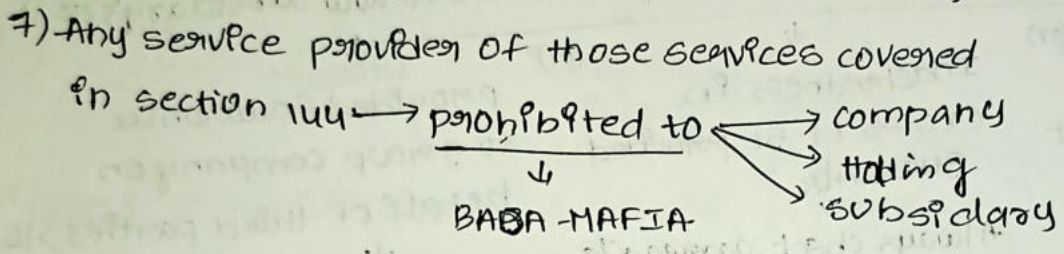 7) Any service provider of those services covered
in section 144 → prohibited to → company
→ Holding
↓ → subsidiary
BABA -MAFIA